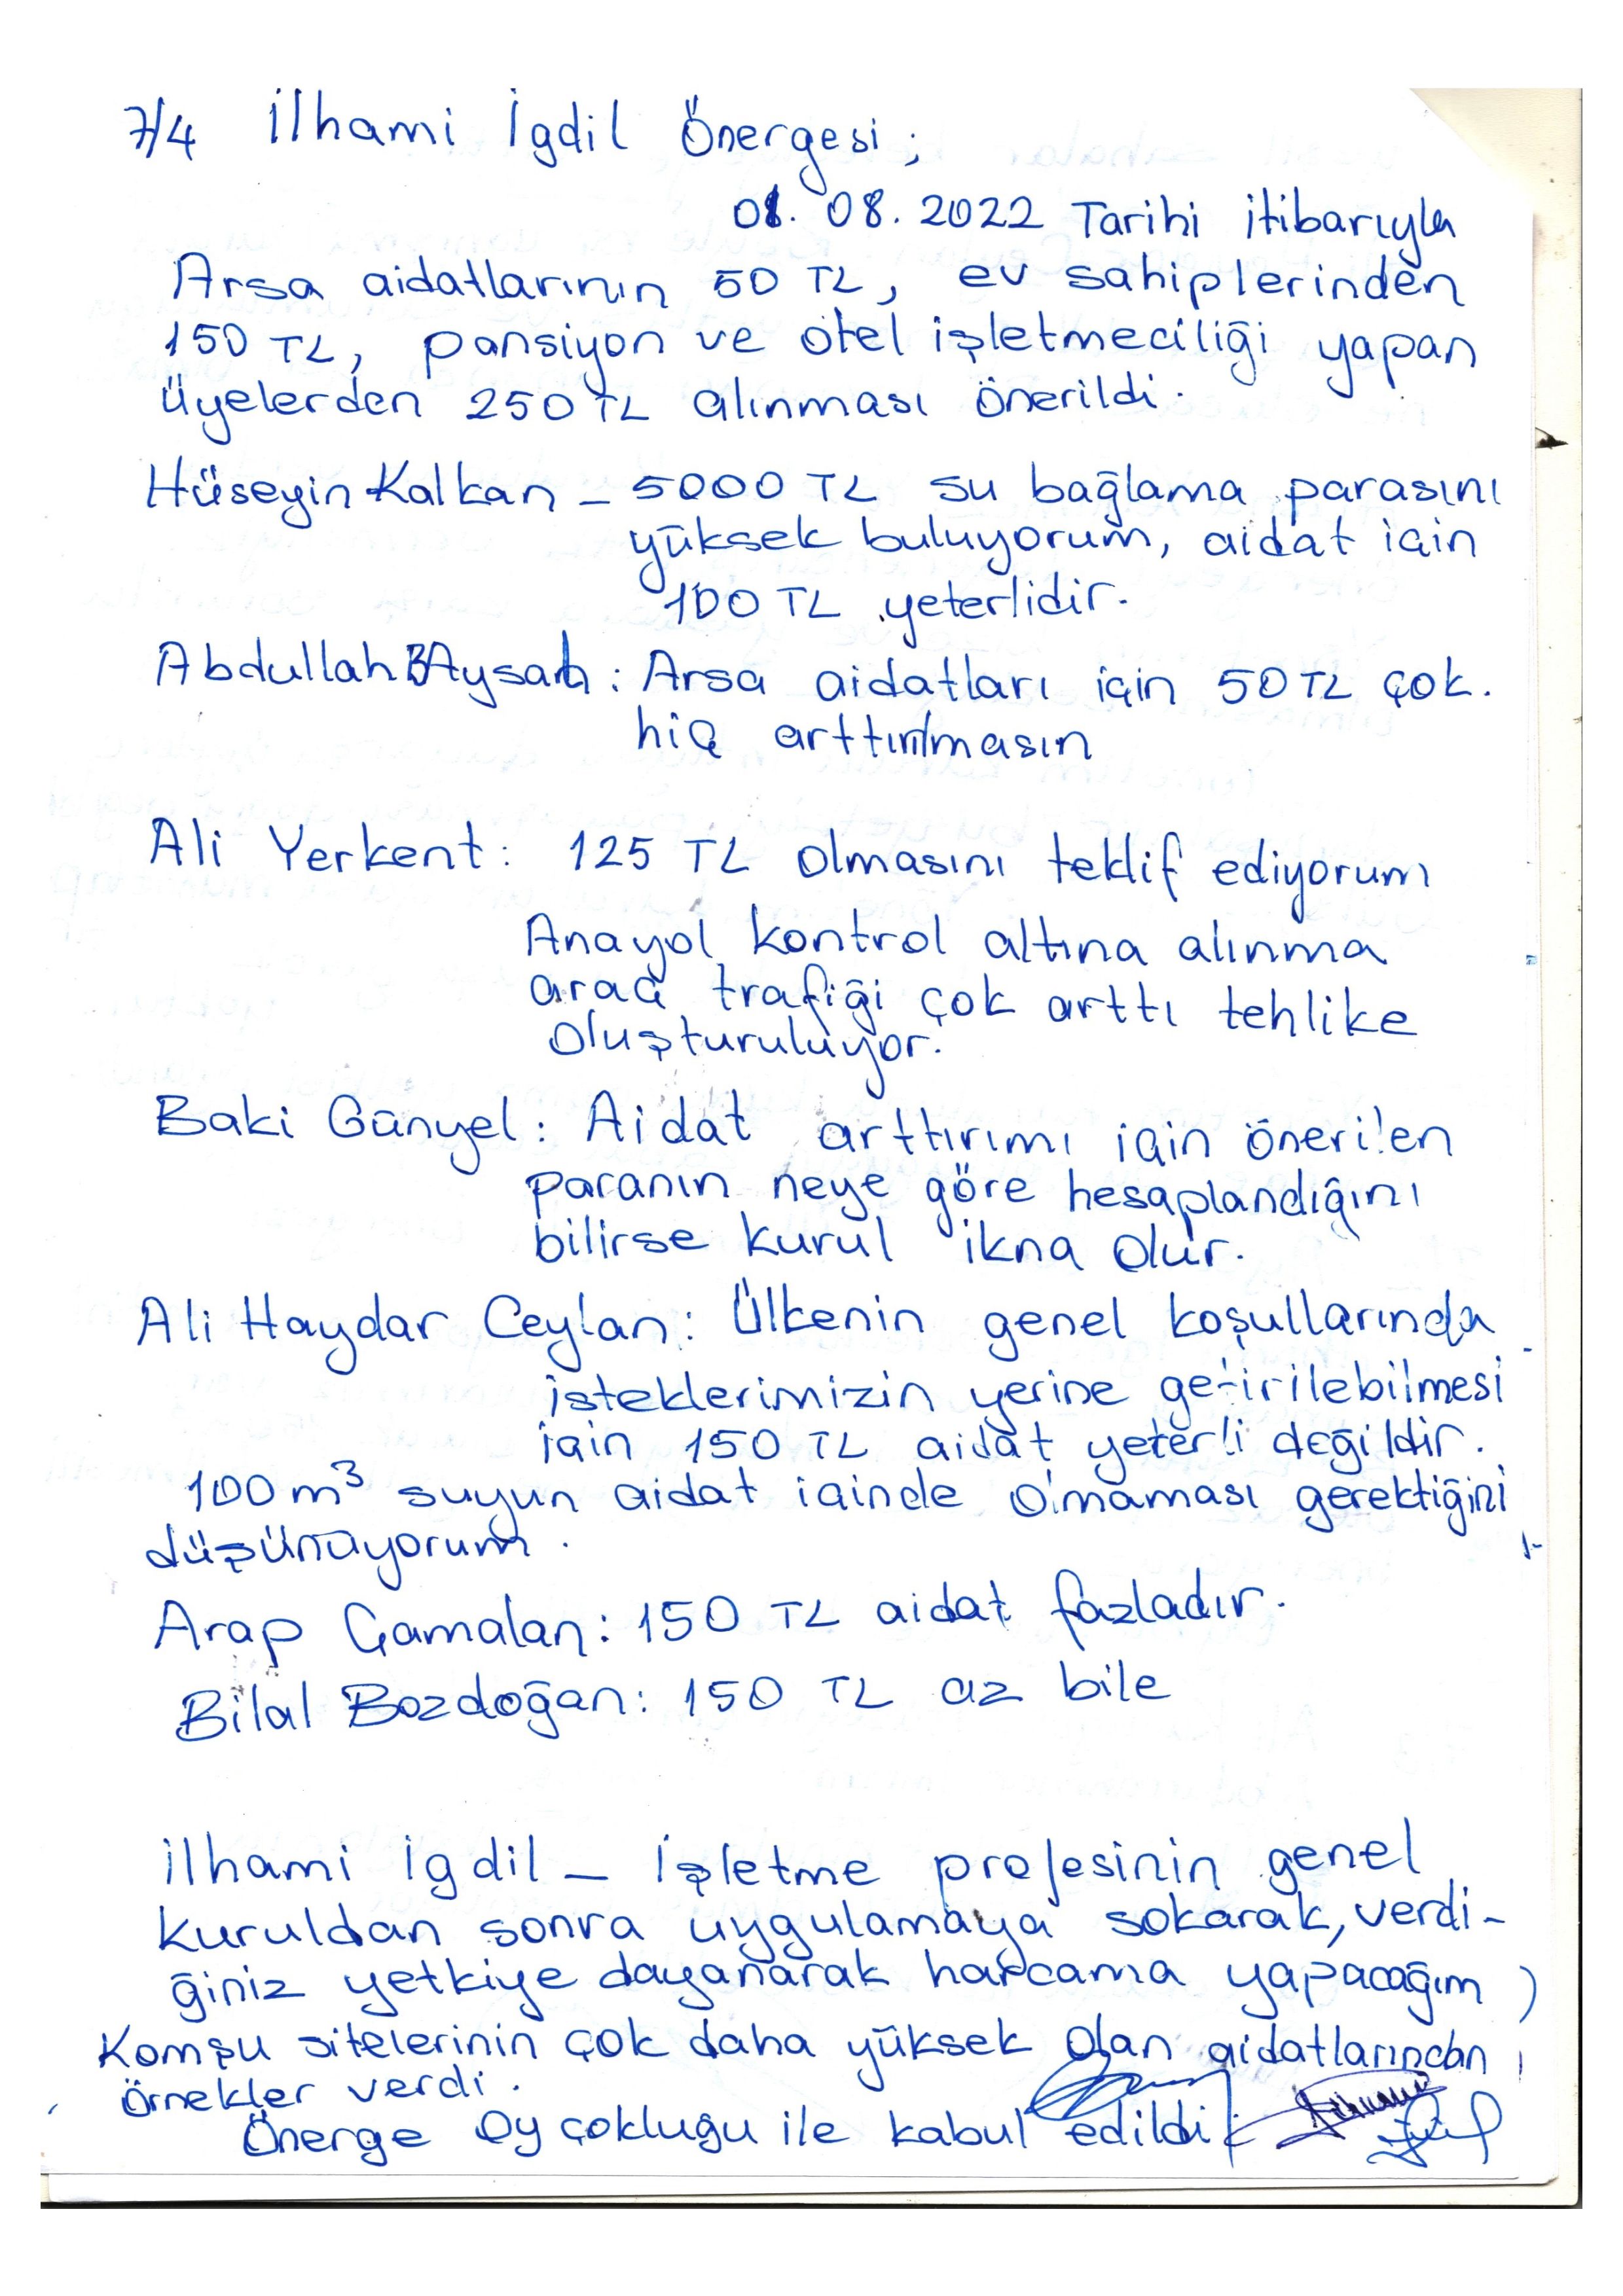 7/4 İlhami İgdil Önergesi;
01. 08. 2022 Tarihi itibarıyla
Arsa aidatlarının 50 TL, ev sahiplerinden
150 TL, pansiyon ve otel işletmeciliği yapan
Üyelerden 250 TL alınması önerildi.
Hüseyin Kalkan – 5000 TL su bağlama parasını
yüksek buluyorum, aidat için
100 TL yeterlidir.
Abdullah : Arsa aidatları için 50 TL çok.
hiç arttırılmasın
Ali Yerkent: 125 TL olmasını teklif ediyorum
Anayol kontrol altına alınma
araç trafiği çok arttı tehlike
oluşturuluyor.
Baki Günyel: Aidat arttırımı için önerilen
paranın neye göre hesaplandığını
bilirse kurul ikna olur.
Ali Haydar Ceylan: Ülkenin genel koşullarında
isteklerimizin yerine getirilebilmesi
için 150 TL aidat yeterli değildir.
100 m³ suyun aidat içinde olmaması gerektiğini
düşünüyorum.
Arap Çamalan: 150 TL aidat fazladır.
Bilal Bozdoğan: 150 TL az bile
İlhami İgdil – İşletme projesinin genel
kuruldan sonra uygulamaya sokarak, verdi-
ğiniz yetkiye dayanarak harcama yapacağım
Komşu sitelerinin çok daha yüksek olan aidatlarından
örnekler verdi.
Önerge oy çokluğu ile kabul edildi.